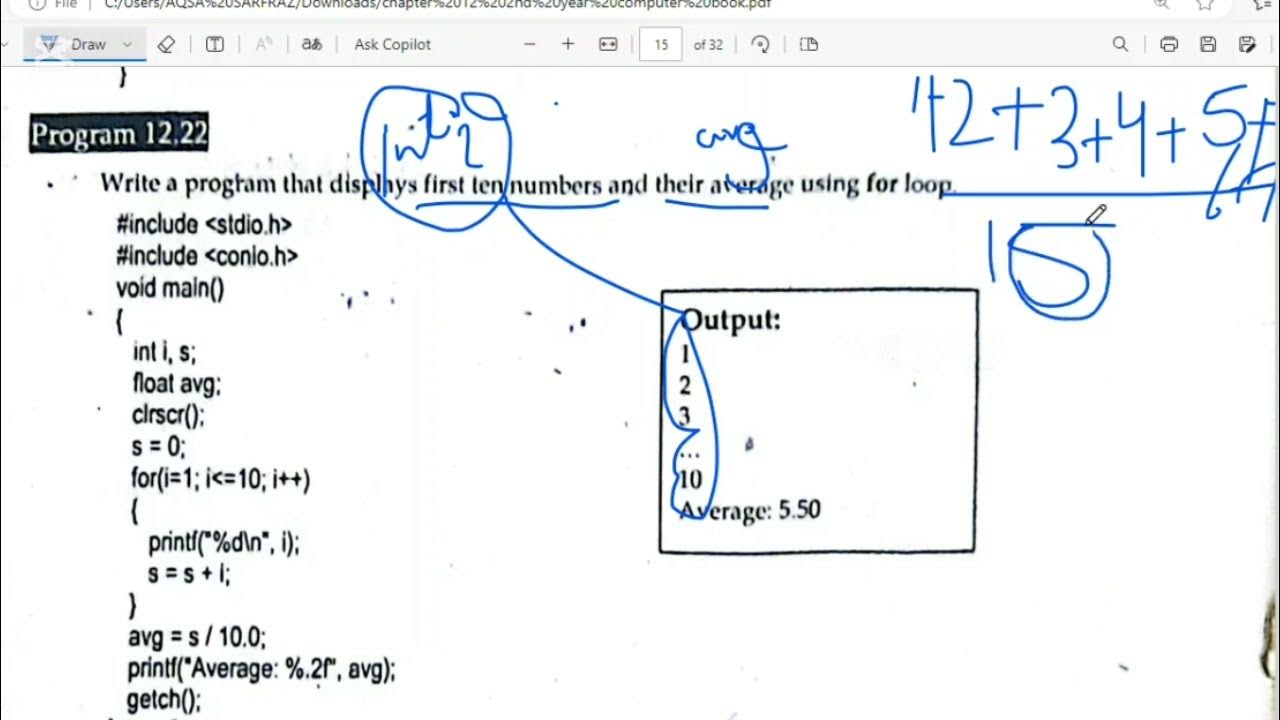 File C:/Users/AQSA%20SARFRAZ/Downloads/chapter%2012%202nd%20year%20computer%20book.pdf
Draw Ask Copilot 15 of 32
}
int avg +2+3+4+5+
Program 12.22
Write a program that displays first ten numbers and their average using for loop.
#include <stdio.h>
#include <conio.h>
void main()
{
int i, s;
float avg;
clrscr();
s = 0;
for(i=1; i<=10; i++)
{
printf("%d\n", i);
s = s + i;
}
avg = s / 10.0;
printf("Average: %.2f", avg);
getch();
Output:
1
2
3
...
10
Average: 5.50